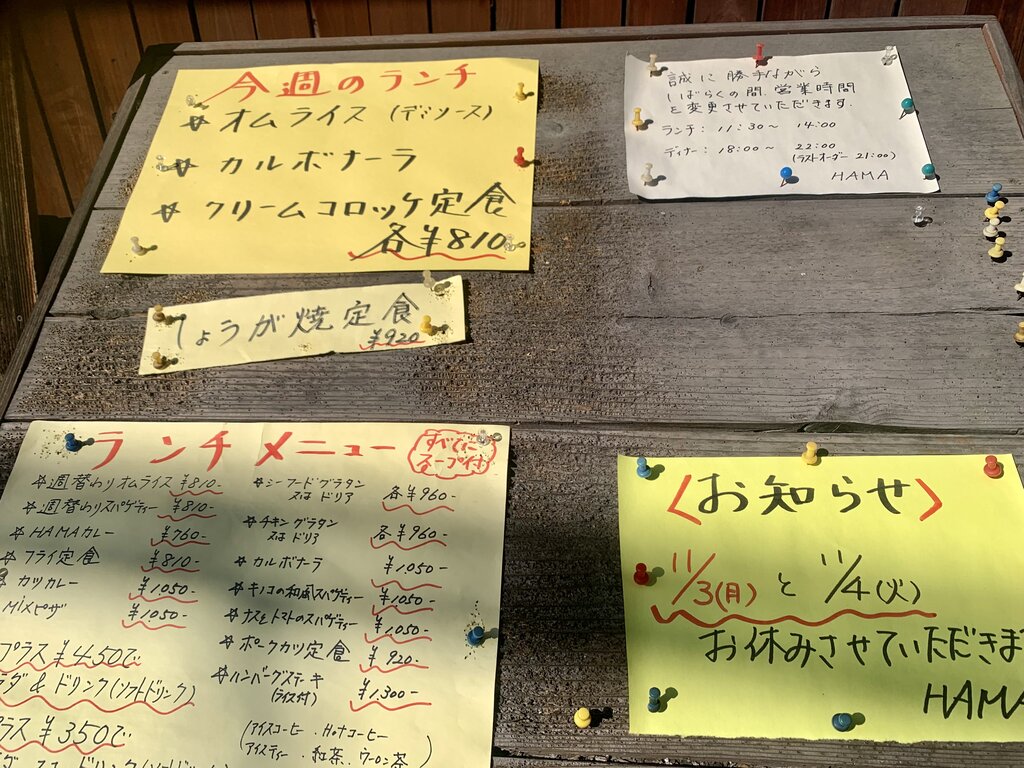 今週のランチ
☆ オムライス (デミソース)
☆ カルボナーラ
☆ クリームコロッケ定食
各¥810
しょうが焼定食
¥920
誠に勝手ながら
しばらくの間、営業時間
を変更させていただきます。
ランチ: 11:30〜 14:00
ディナー: 18:00〜 22:00
(ラストオーダー 21:00)
HAMA
ランチメニュー
すべてに
スープ付
☆週替わりオムライス ¥810-
☆週替わりスパゲティー ¥810-
☆ HAMAカレー ¥760-
☆ フライ定食 ¥810-
カツカレー ¥1,050-
MIXピザ ¥1,050-
プラス¥450で
ダ & ドリンク(ソフトドリンク)
ラス ¥350で
☆シーフードグラタン
又は ドリア 各¥960-
☆チキングラタン
又は ドリア 各¥960-
☆カルボナーラ ¥1,050-
☆キノコの和風スパゲティー ¥1,050-
☆ナスとトマトのスパゲティー ¥1,050-
☆ポークカツ定食 ¥920-
☆ハンバーグステーキ
(ライス付) ¥1,300-
(アイスコーヒー . Hotコーヒー
アイスティー . 紅茶 . ウーロン茶)
〈お知らせ〉
11/3(月) と 11/4(火)
お休みさせていただきま
HAMA